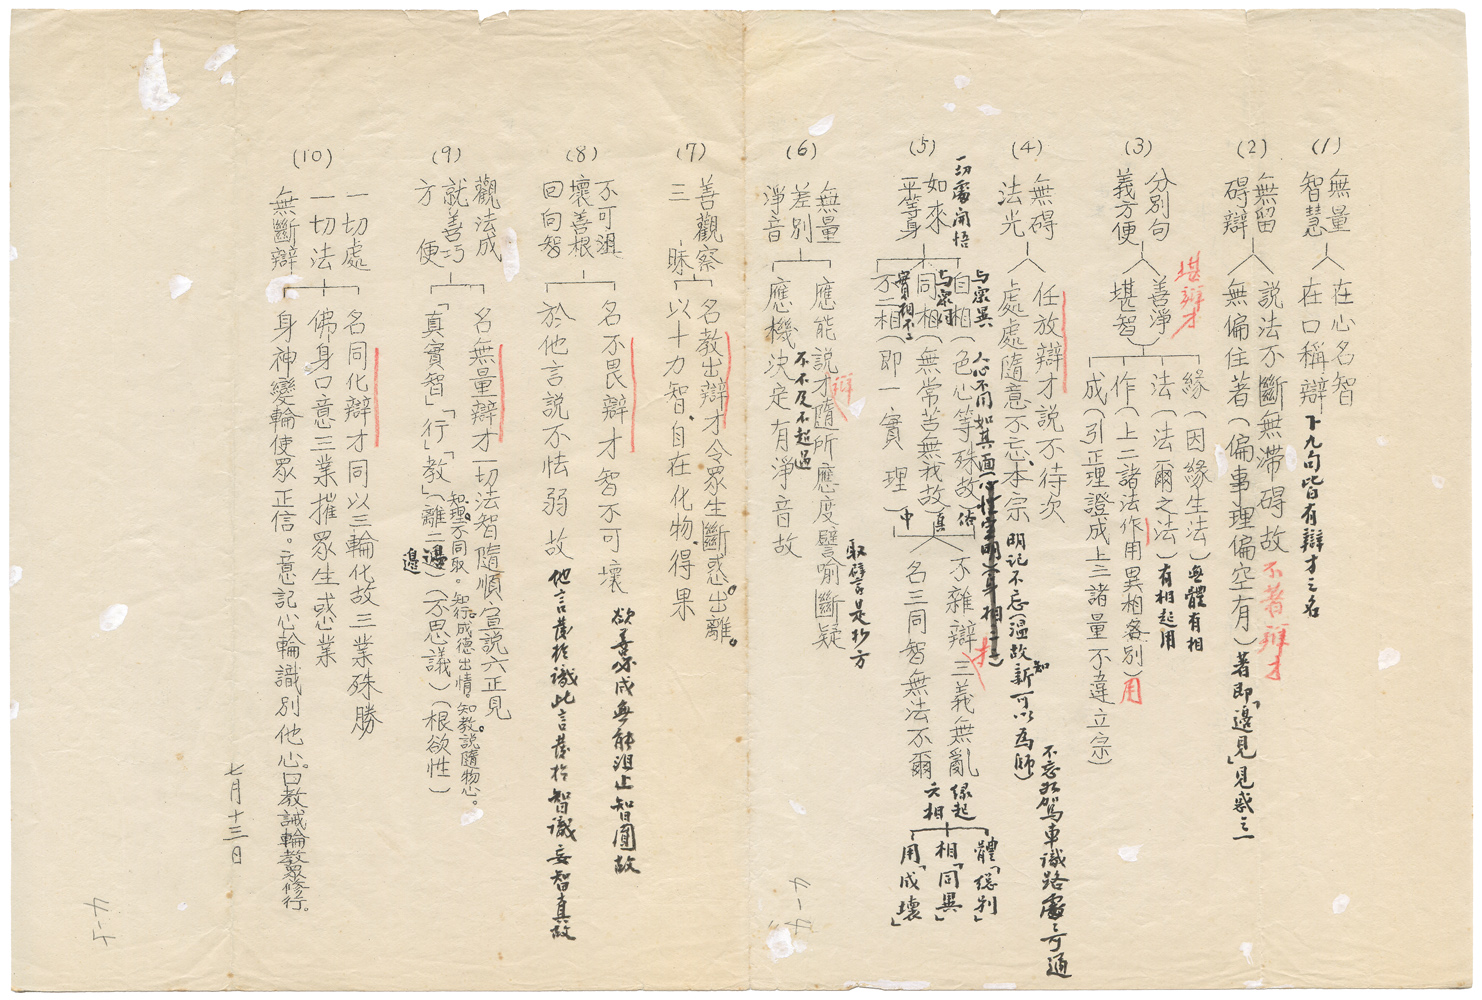 (1)
無量
智慧
在心名智
在口稱辯
下九句皆有辯才之名
(2)
無留
碍辯
說法不斷無滯碍故
無偏住著(偏事理偏空有)
不著辯才
著即「邊見」見惑之一
(3)
分別句
義方便
善淨
堪智
堪辯才
緣(因緣生法)
無體有相
法(法爾之法)
有相起用
作(上二諸法作用異相各別)
用
成(引正理證成上三諸量不違立宗)
(4)
無碍
法光
任放辯才說不待次
處處隨意不忘本宗
明記不忘溫故知新可以為師)
不忘如駕車識路處之可通
(5)
一切處開悟
如來
平等身
自相(色心等殊故)
与眾異
人心不同如其面
俗
同相(無常苦無我故)
与眾同
真
不二相(即一實理)
實相不二
中
不雜辯
才
三義無亂
名三同智無法不爾
緣起
六相
體「總別」
相「同異」
用「成壞」
(6)
無量
差別
淨音
應能說才隨所應度譬喻斷疑
辯
取譬言是抄方
應機決定有淨音故
不不及不超過
(7)
善觀察
三昧
名教出辯才令眾生斷惑。出離。
以十力智、自在化物、得果
(8)
不可沮
壞善根
回向智
名不畏辯才智不可壞
欲善必成無能沮止智圓故
於他言說不怯弱故
他言發於識此言發於智識妄智真故
(9)
觀法成
就善巧
方便
名無量辯才一切法智隨順宣說六正見
「真實智」「行」「教」(離二邊)(不思議)(根欲性)
邊
知理不同取。知行。成德出情。知教。說隨物心。
(10)
一切處
一切法
無斷辯
名同化辯才同以三輪化故三業殊勝
佛身口意三業摧眾生惑業
身神變輪使眾正信。意記心輪識別他心。口教誡輪教眾修行。
七月十三日